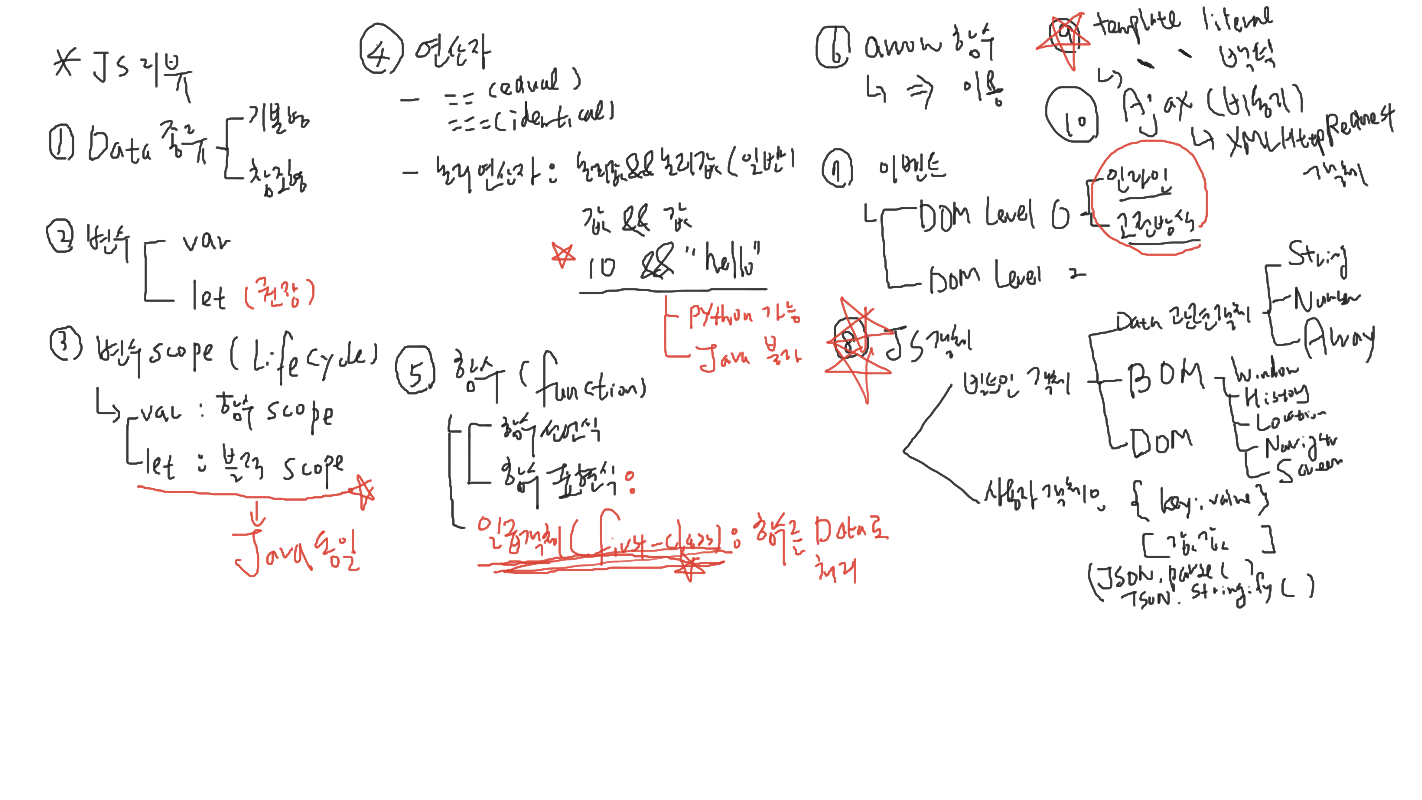 * JS 리뷰
① Data 종류
기본형
참조형
② 변수
var
let (권장)
③ 변수 scope (Life cycle)
var : 함수 scope
let : 블럭 scope
Java 동일
④ 연산자
- == (equal)
=== (identical)
- 논리연산자 : 논리값&&논리값 (일반)
값 && 값
10 && "hello"
python 가능
Java 불가
⑤ 함수 (function)
함수 선언식
함수 표현식 :
일급객체 (first-class) : 함수를 Data로
처리
⑥ arrow 함수
=> 이용
⑦ 이벤트
DOM Level 0
인라인
고전방식
DOM Level 2
⑧ JS객체
빌트인 객체
Data 관련 객체
String
Number
Array
BOM
Window
History
Location
Navigator
Screen
DOM
사용자 객체
{ key : value }
[ 값, 값 ]
(JSON.parse( )
JSON.stringify( )
⑨ template literal
` ` 백틱
⑩ Ajax (비동기)
XMLHttpRequest
객체